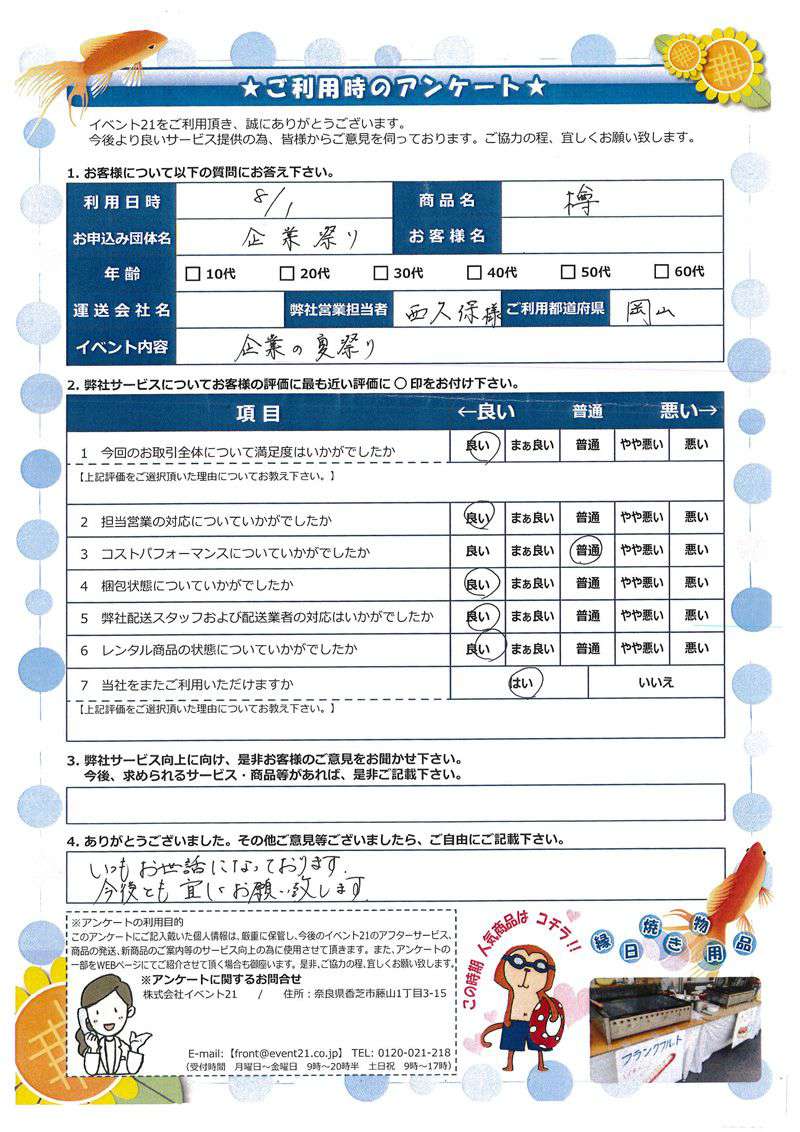 ★ご利用時のアンケート★
イベント21をご利用頂き、誠にありがとうございます。
今後より良いサービス提供の為、皆様からご意見を伺っております。ご協力の程、宜しくお願い致します。
1. お客様について以下の質問にお答え下さい。
利用日時 8/1 商品名 櫓
お申込み団体名 企業祭り お客様名
年齢 □10代 □20代 □30代 □40代 □50代 □60代
運送会社名 弊社営業担当者 西久保様 ご利用都道府県 岡山
イベント内容 企業の夏祭り
2. 弊社サービスについてお客様の評価に最も近い評価に 〇 印をお付け下さい。
項目 ←良い 普通 悪い→
1 今回のお取引全体について満足度はいかがでしたか 良い まぁ良い 普通 やや悪い 悪い
【上記評価をご選択頂いた理由についてお教え下さい。】
2 担当営業の対応についていかがでしたか 良い まぁ良い 普通 やや悪い 悪い
3 コストパフォーマンスについていかがでしたか 良い まぁ良い 普通 やや悪い 悪い
4 梱包状態についていかがでしたか 良い まぁ良い 普通 やや悪い 悪い
5 弊社配送スタッフおよび配送業者の対応はいかがでしたか 良い まぁ良い 普通 やや悪い 悪い
6 レンタル商品の状態についていかがでしたか 良い まぁ良い 普通 やや悪い 悪い
7 当社をまたご利用いただけますか はい いいえ
【上記評価をご選択頂いた理由についてお教え下さい。】
3. 弊社サービス向上に向け、是非お客様のご意見をお聞かせ下さい。
今後、求められるサービス・商品等があれば、是非ご記載下さい。
4. ありがとうございました。その他ご意見等ございましたら、ご自由にご記載下さい。
いつもお世話になっております。
今後とも宜しくお願い致します。
※アンケートの利用目的
このアンケートにご記入戴いた個人情報は、厳重に保管し、今後のイベント21のアフターサービス、
商品の発送、新商品のご案内等のサービス向上の為に使用させて頂きます。また、アンケートの
一部をWEBページにてご紹介させて頂く場合も御座います。是非、ご協力の程、宜しくお願い致します。
※アンケートに関するお問合せ
株式会社イベント21 / 住所:奈良県香芝市藤山1丁目3-15
E-mail:【front@event21.co.jp】 TEL: 0120-021-218
(受付時間 月曜日~金曜日 9時~20時半 土日祝 9時~17時)
この時期 人気商品は コチラ!!
縁日焼き物用品
フランクフルト